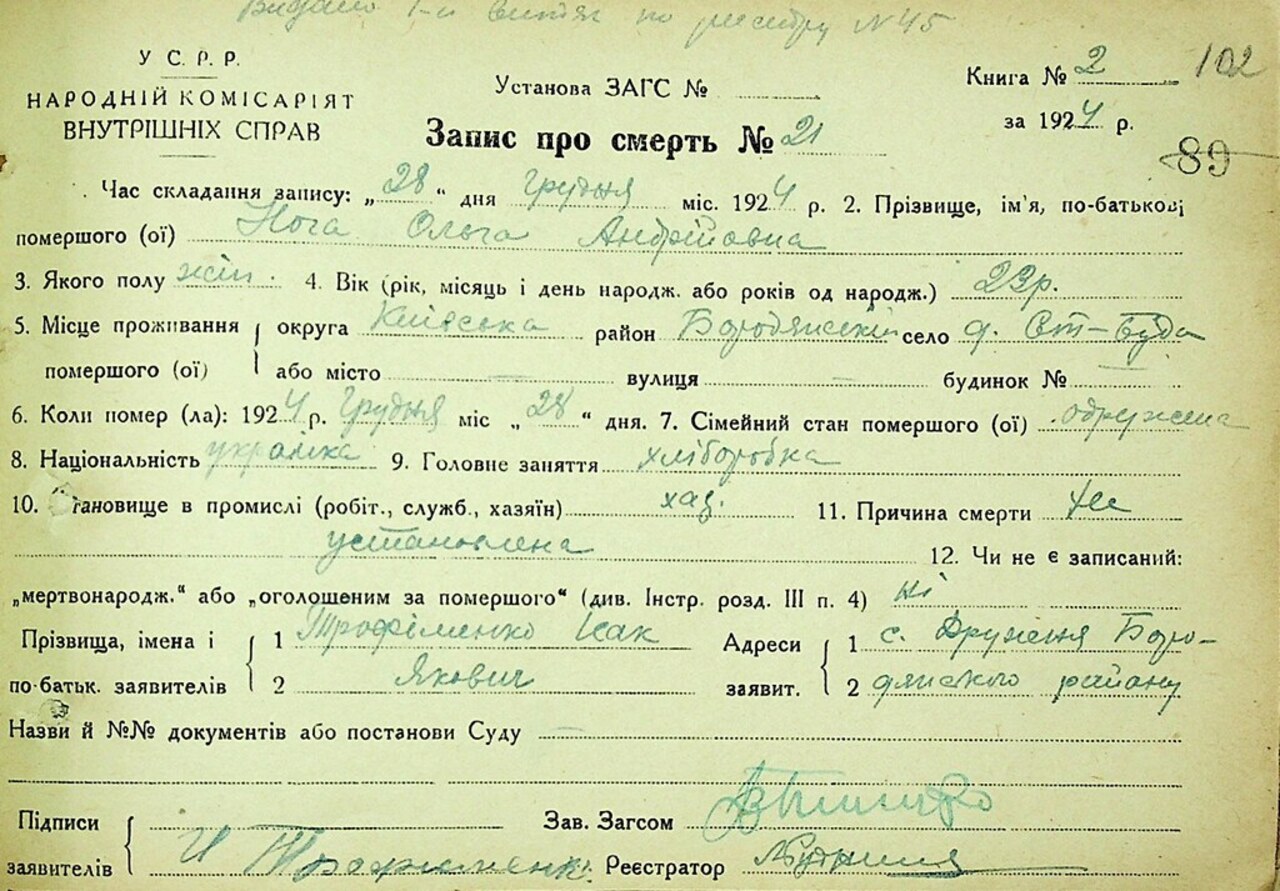 Видано 1-й витяг по реєстру N 45
У С. Р. Р.
НАРОДНІЙ КОМІСАРІЯТ
ВНУТРІШНІХ СПРАВ
Установа ЗАГС №
Книга № 2
102
за 1924 р.
Запис про смерть № 21
89
Час складання запису: „28“ дня грудня міс. 1924 р. 2. Прізвище, ім'я, по-батькові
помершого (ої) Нога Ольга Андрійовна
3. Якого полу жін. 4. Вік (рік, місяць і день народж. або років од народж.) 23р.
5. Місце проживання помершого (ої) { округа Київська район Бородянський село д. Вт-Буда
або місто — вулиця — будинок № —
6. Коли помер (ла): 1924 р. Грудня міс „28“ дня. 7. Сімейний стан помершого (ої) одружена
8. Національність українка 9. Головне заняття хліборобка
10. Становище в промислі (робіт., служб., хазяїн) хаз. 11. Причина смерти не
установлена 12. Чи не є записаний:
„мертвонародж.“ або „оголошеним за помершого“ (див. Інстр. розд. III п. 4) ні
Прізвища, імена і { 1 Трофіменко Ісак Адреси { 1 с. Дружня Боро-
по-батьк. заявителів 2 Якович заявит. 2 дянського району
Назви й №№ документів або постанови Суду —
Підписи { Зав. Загсом
заявителів И Трофименко Реєстратор